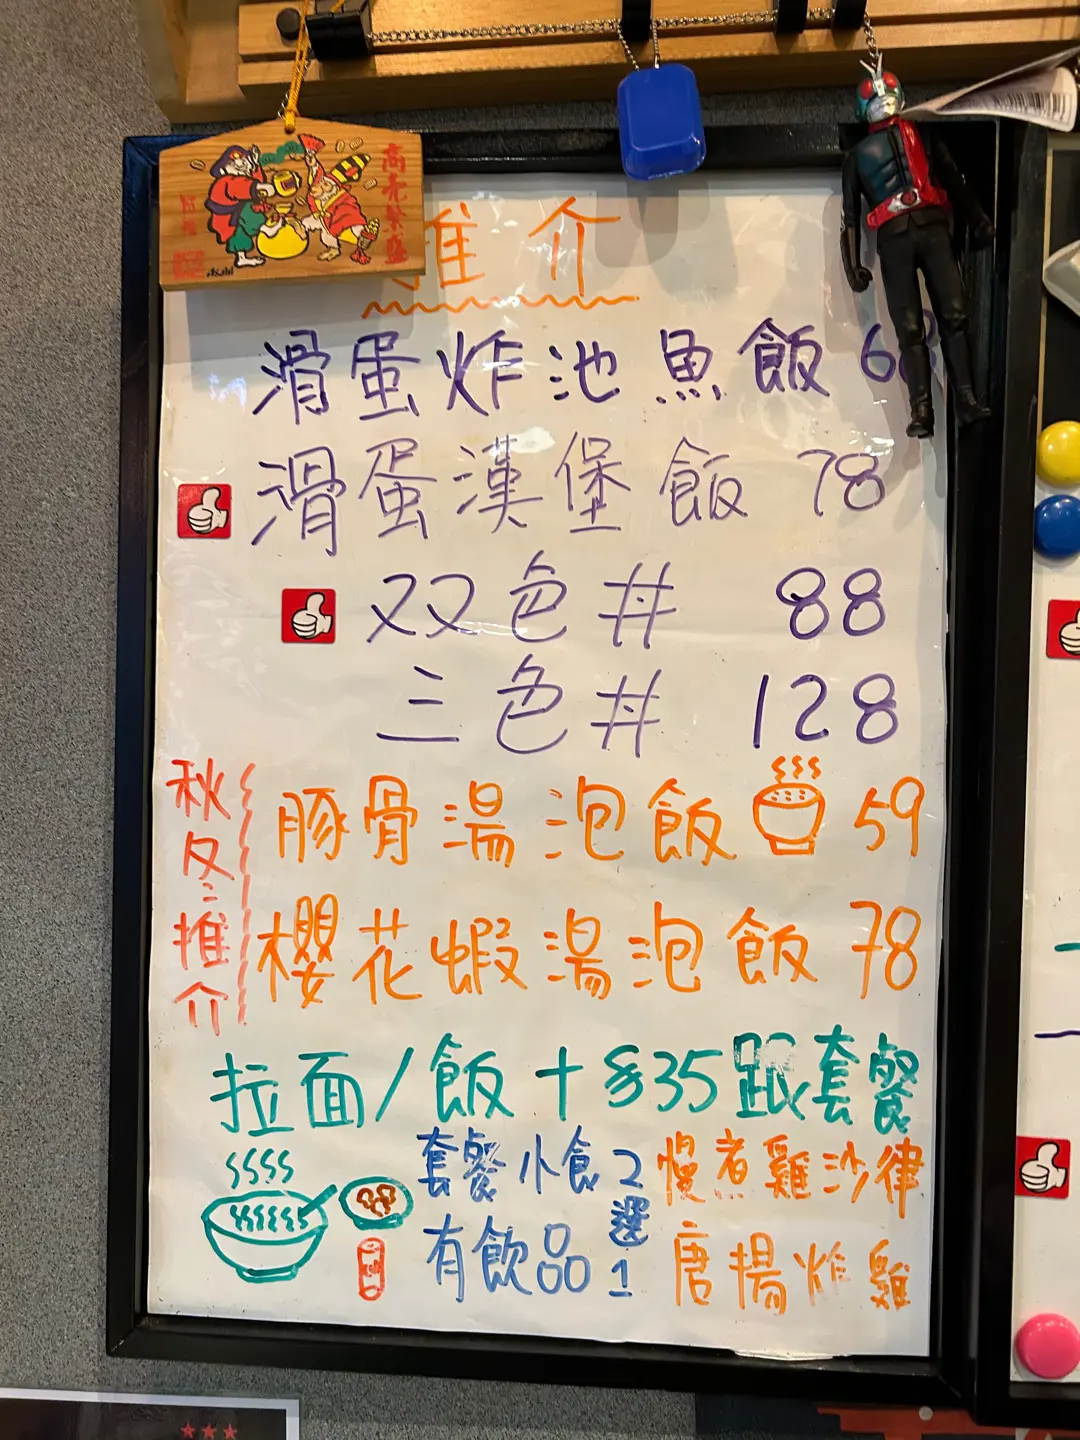 商売繁盛
Asahi
推介
滑蛋炸池魚飯 68
滑蛋漢堡飯 78
双色丼 88
三色丼 128
秋冬推介
豚骨湯泡飯 59
櫻花蝦湯泡飯 78
拉面/飯+$35跟套餐
套餐小食2選1
有飲品
慢煮雞沙律
唐揚炸雞